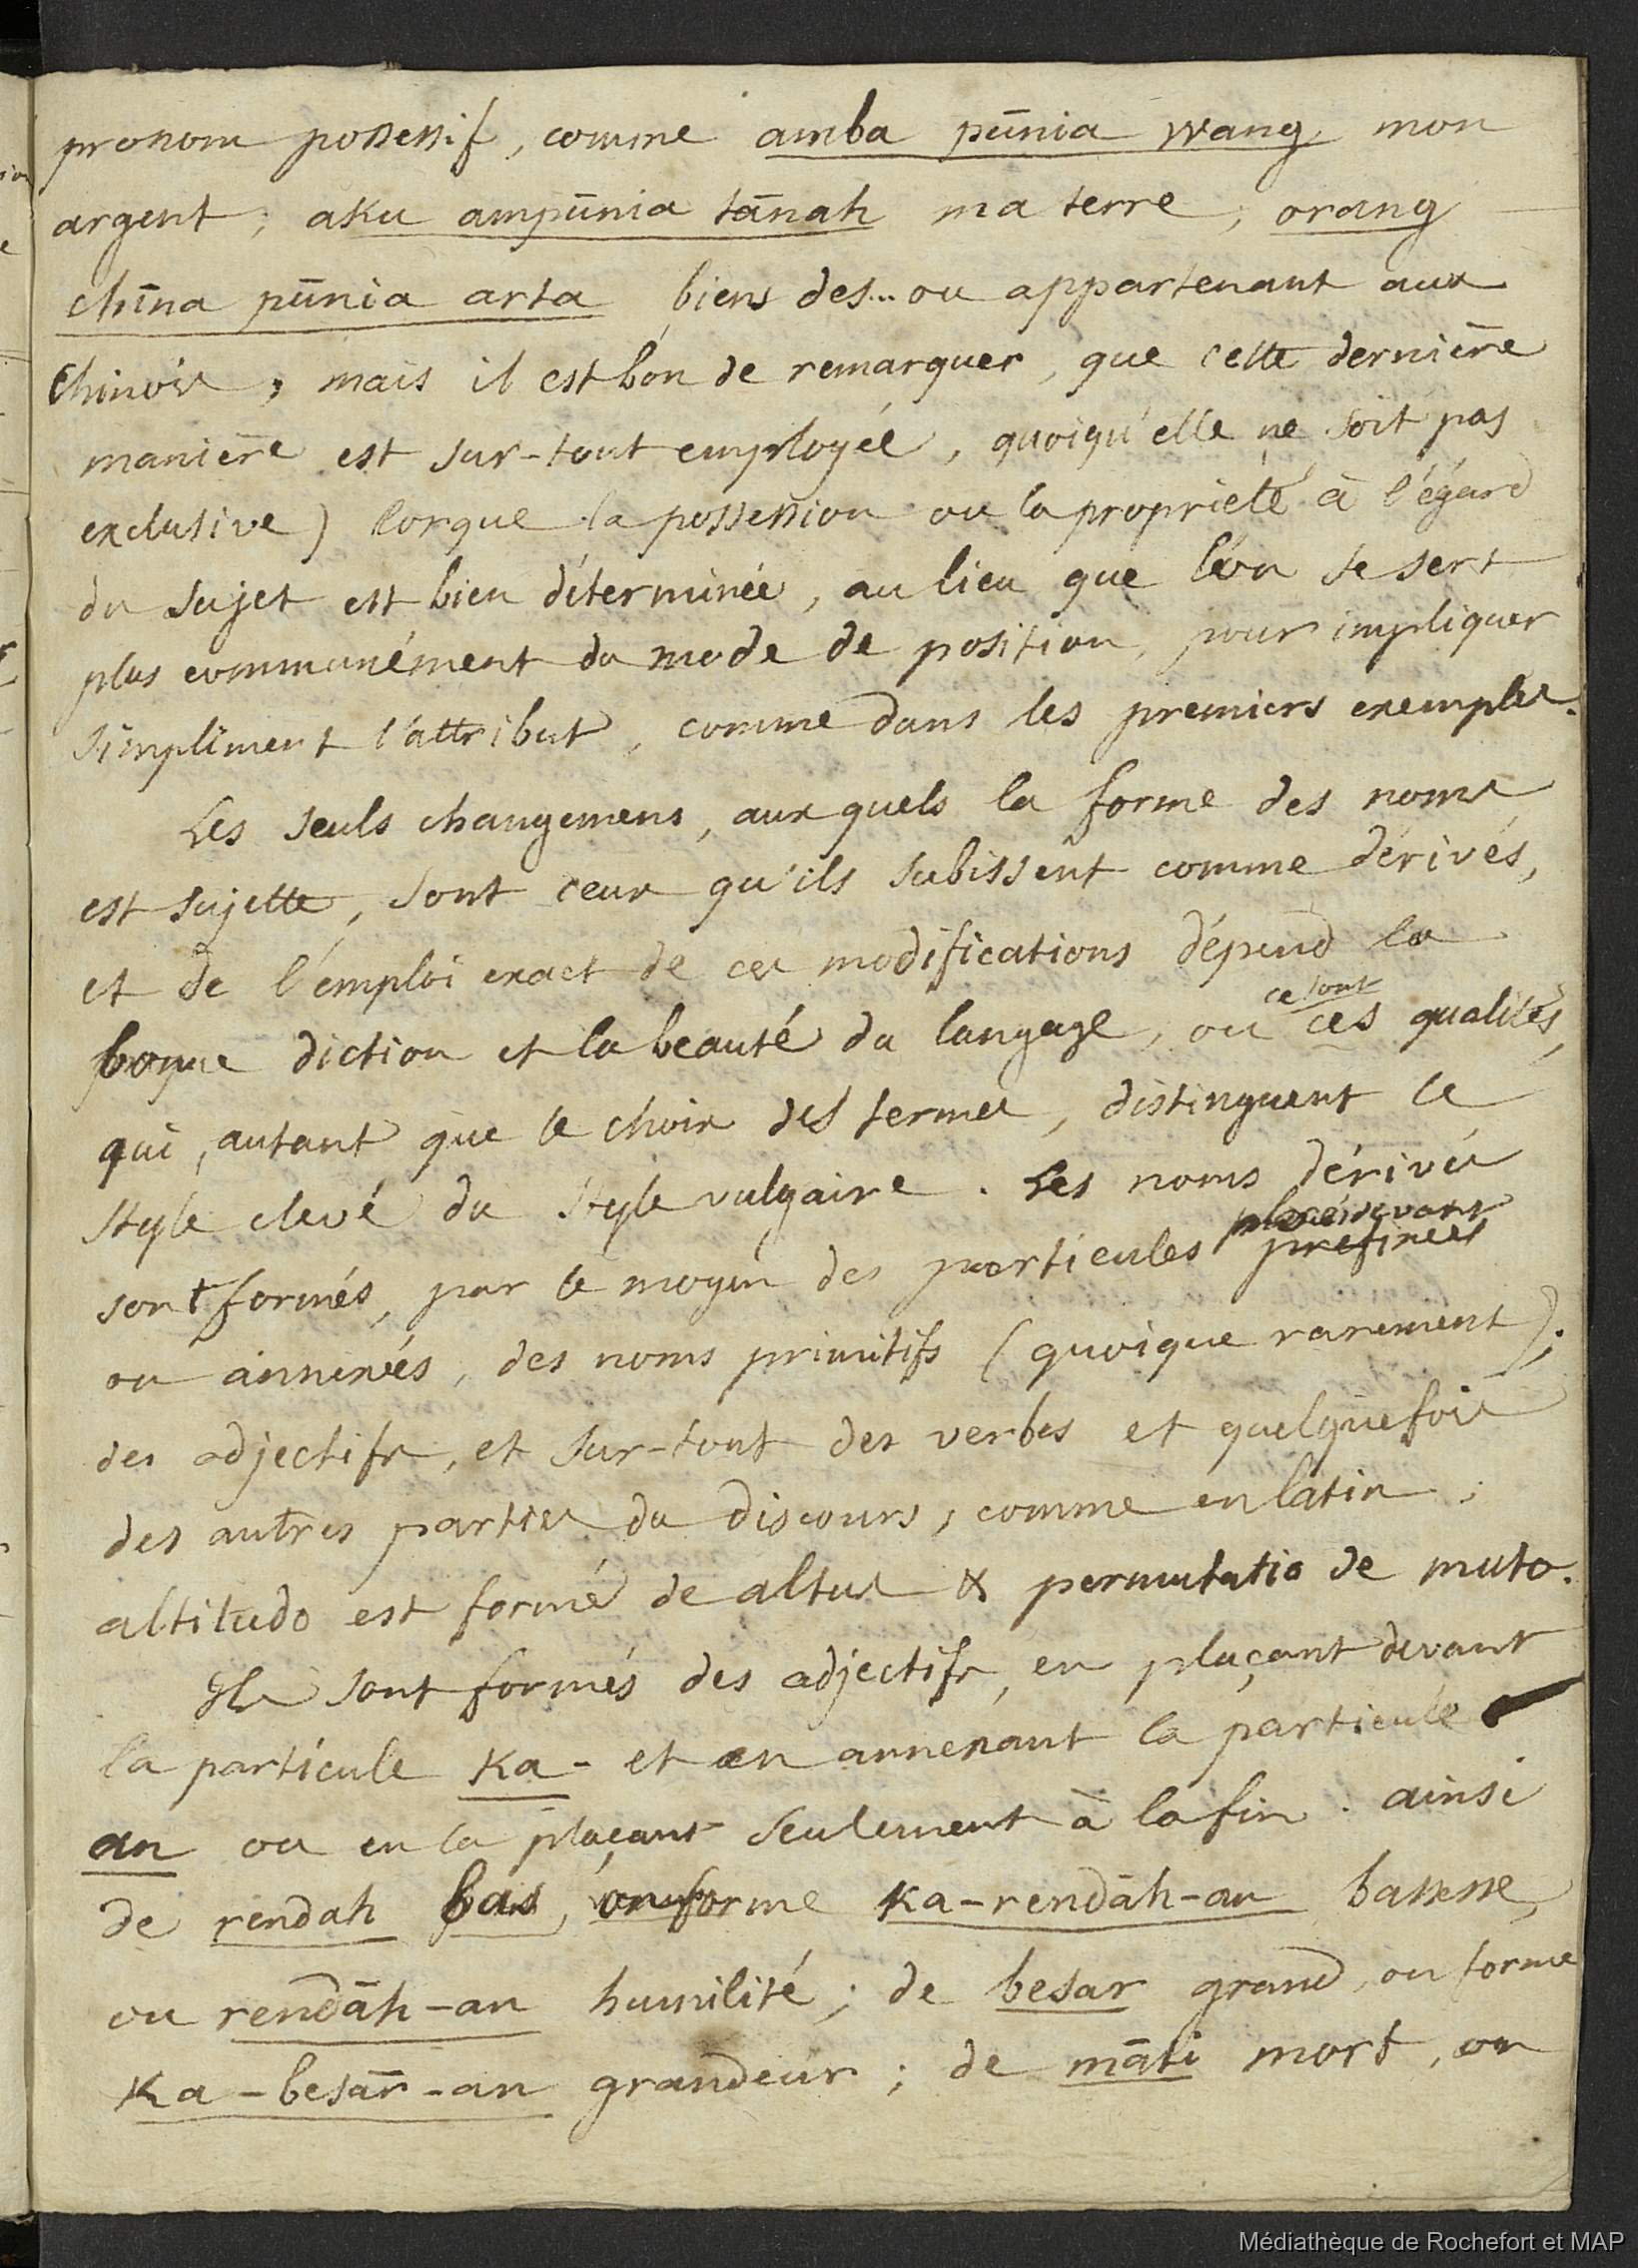 pronom possessif, comme amba pūnia wang mon
argent; aku ampūnia tānah ma terre, orang
chīna pūnia arta biens des... ou appartenant aux
Chinois, mais il est bon de remarquer, que cette dernière
manière est sur-tout employée, quoiqu'elle ne soit pas
exclusive) lorque la possession ou la propriété à l'égard
du sujet est bien déterminée, au lieu que l'on se sert
plus communément du mode de position, pour impliquer
simpliment l'attribut, comme dans les premiers exemples.
Les seuls changemens, auxquels la forme des noms
est sujette, sont ceux qu'ils subissent comme dérivés,
et de l'emploi exact de ces modifications dépend la
bonne diction et la beauté du langage, ou ce sont ces qualités,
qui, autant que le choix des termes, distinguent le
style elevé du style vulgaire. Les noms dérivés
placés devant
sont formés, par le moyen des particules prefixées
ou annexés, des noms primitifs (quoique rarement);
des adjectifs, et sur-tout des verbes et quelquefois
des autres parties du discours, comme en latin;
altitudo est formé de altus & permutatio de muto.
Ils sont formés des adjectifs, en plaçant devant
la particule ka- et en annexant la particule
an ou en la plaçant seulement à la fin. ainsi
de rendah bas, on forme ka-rendāh-an bassesse,
ou rendāh-an humilité; de besar grand, on forme
ka-besār-an grandeur; de māti mort, on
Médiathèque de Rochefort et MAP